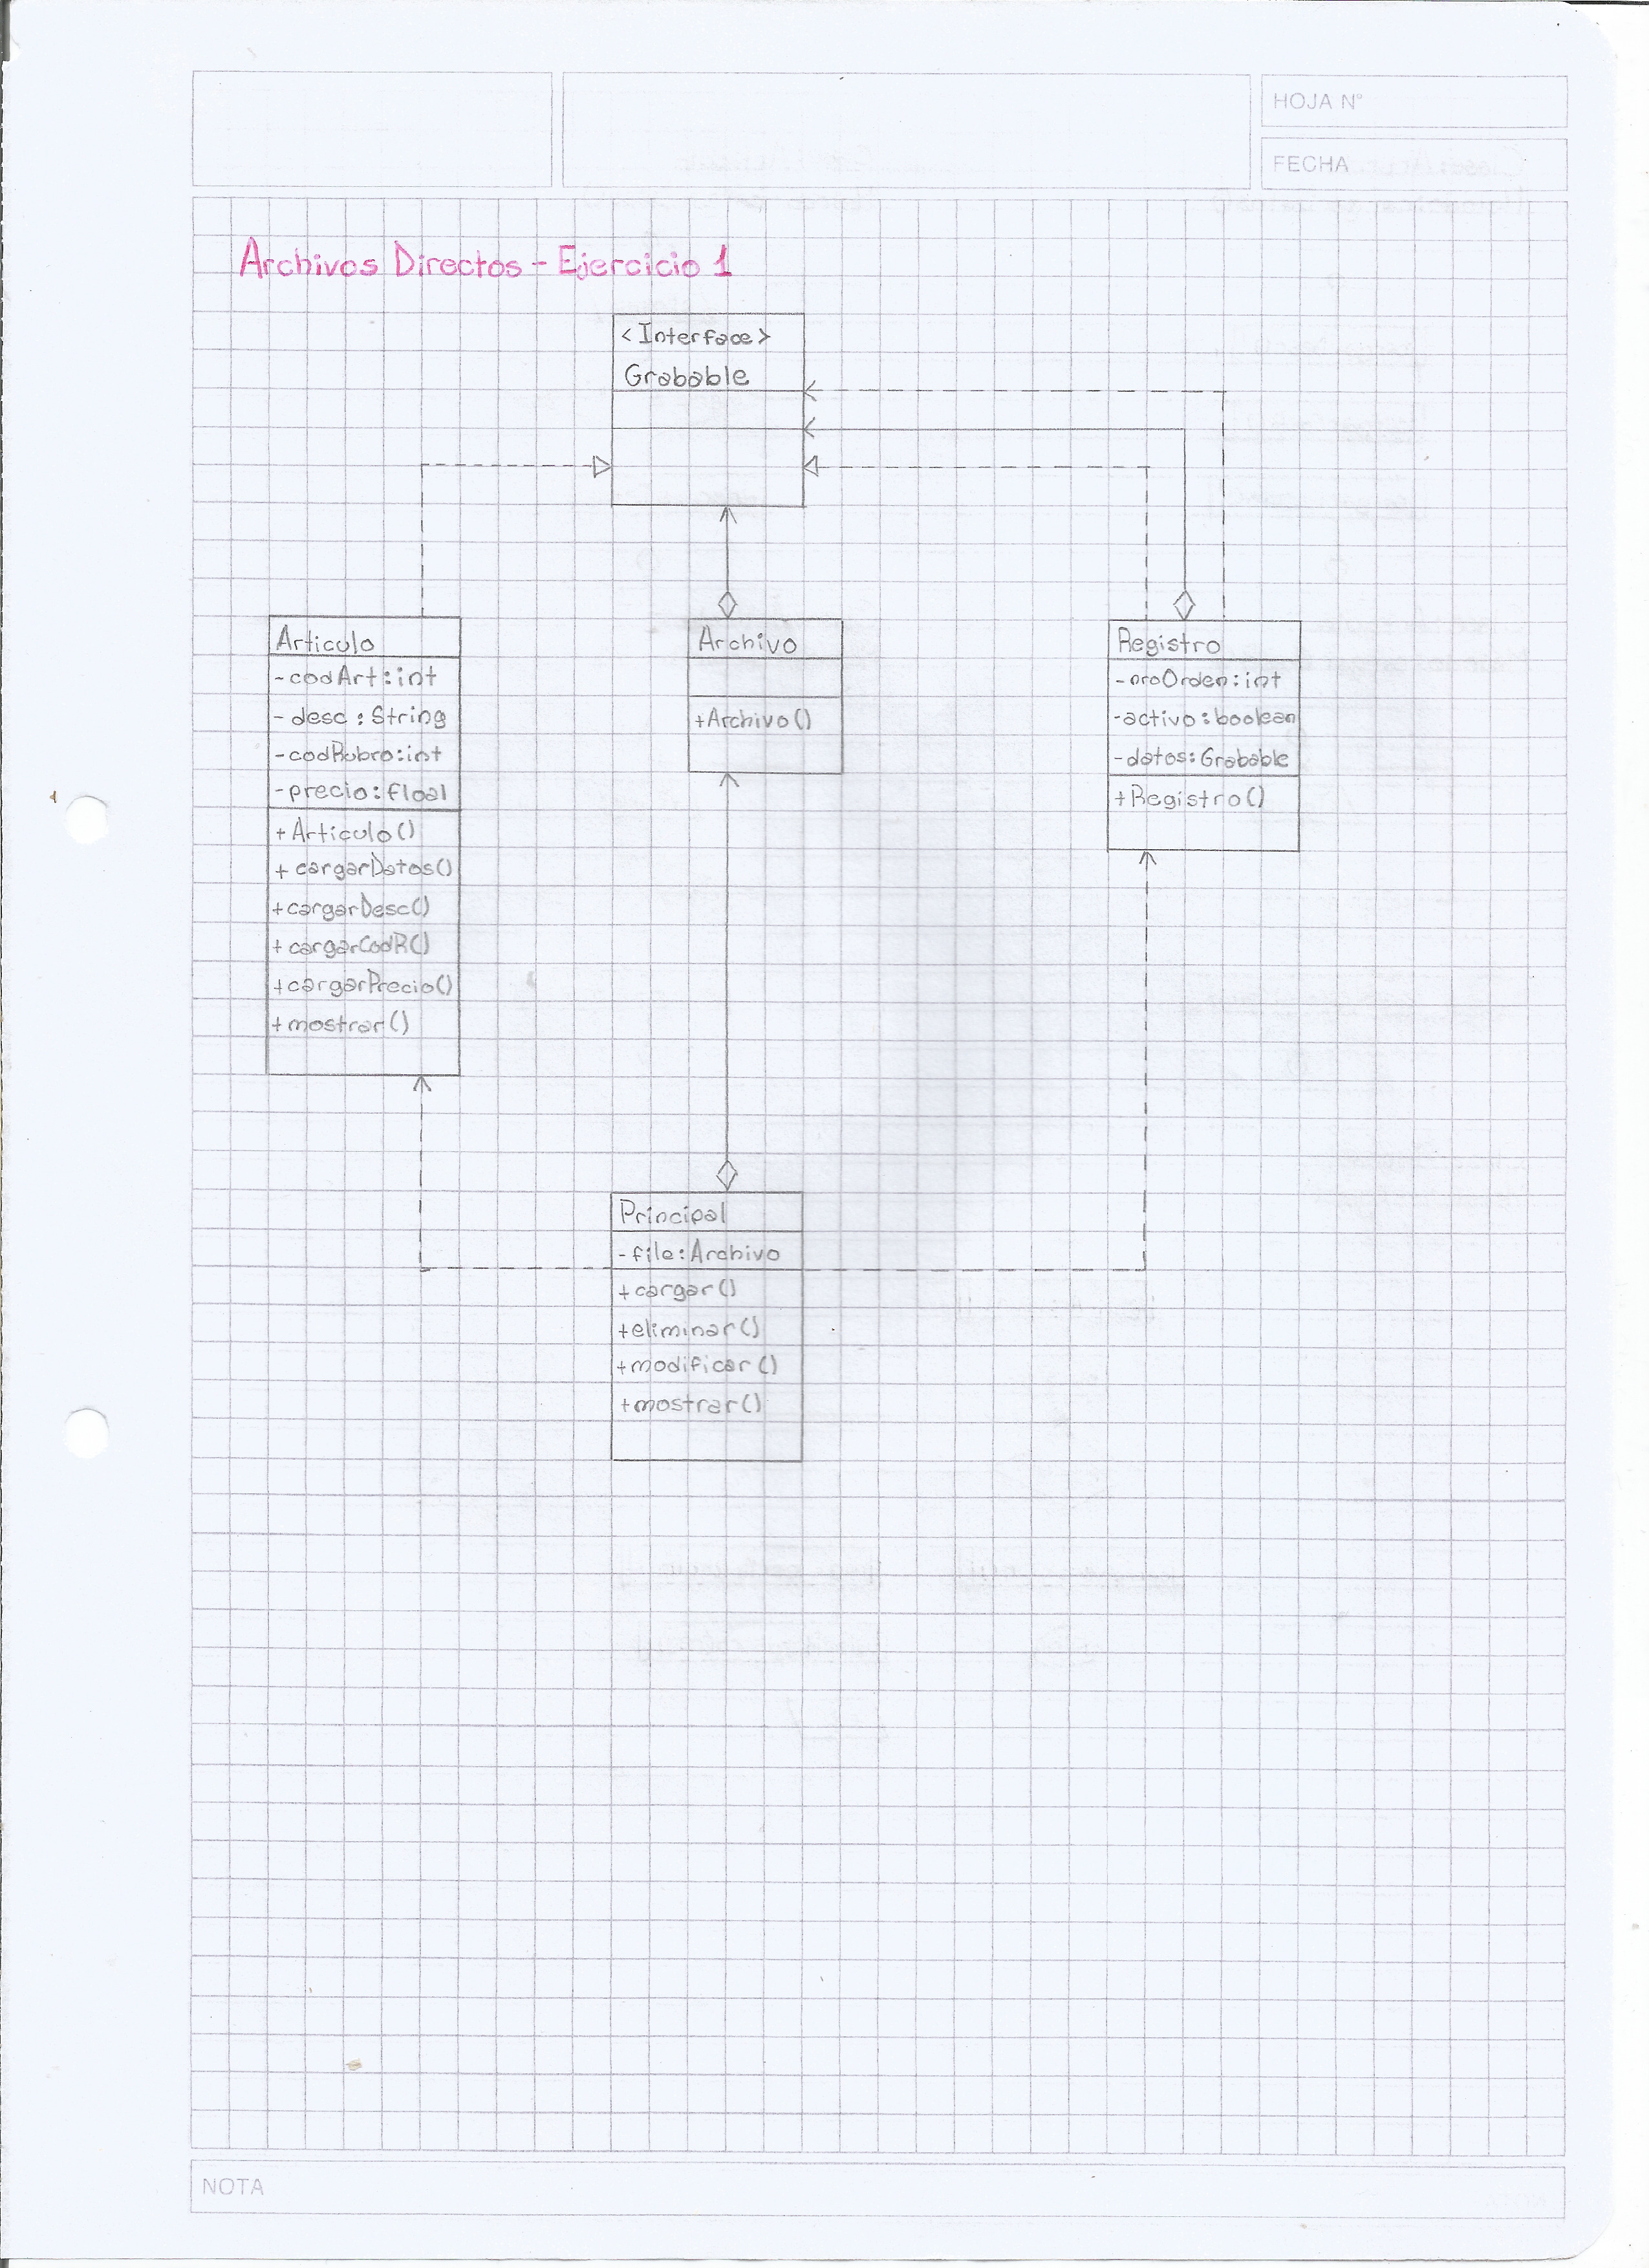 HOJA N°
FECHA
Archivos Directos - Ejercicio 1
<Interface>
Grabable
Articulo
-codArt:int
-desc:String
-codRubro:int
-precio:float
+Articulo()
+cargarDatos()
+cargarDesc()
+cargarCodR()
+cargarPrecio()
+mostrar()
Archivo
+Archivo()
Registro
-nroOrden:int
-activo:boolean
-datos:Grabable
+Registro()
Principal
-file:Archivo
+cargar()
+eliminar()
+modificar()
+mostrar()
NOTA